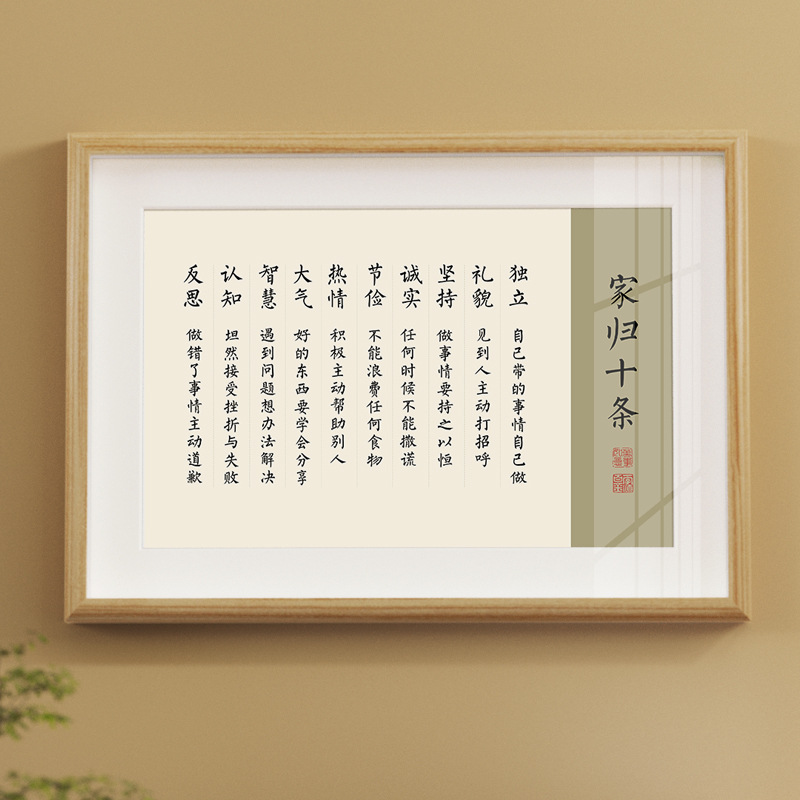 家归十条
独立 自己带的事情自己做
礼貌 见到人主动打招呼
坚持 做事情要持之以恒
诚实 任何时候不能撒谎
节俭 不能浪费任何食物
热情 积极主动帮助别人
大气 好的东西要学会分享
智慧 遇到问题想办法解决
认知 坦然接受挫折与失败
反思 做错了事情主动道歉